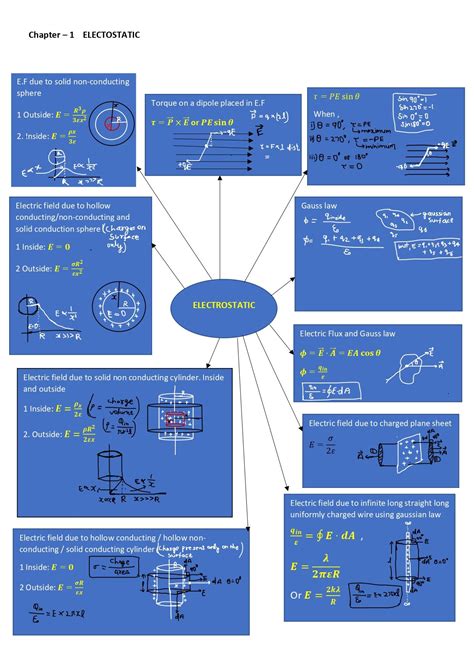 Chapter – 1    ELECTOSTATIC
E.F due to solid non-conducting
sphere
1 Outside: E = R³ρ / 3εx²
2. Inside: E = ρx / 3ε
E∝x
E∝1/x²
R
x>R
Torque on a dipole placed in E.F
τ = P⃗ × E⃗ or PE sin θ
τ = PE sin θ
When ,
i) θ = 90°, τ = PE
→ maximum
ii) θ = 270°, τ = -PE
→ minimum
iii) θ = 0° or 180°
τ = 0
Sin 90° = 1
Sin 270° = -1
Sin 0° = 0
Sin 180° = 0
Electric field due to hollow
conducting/non-conducting and
solid conduction sphere (charges on
surface
only)
1 Inside: E = 0
2 Outside: E = σR² / εx²
E=0
E∝1/x²
R
Gauss law
ϕ = q inside / ε₀
ϕ = q₁ + q₂ + q₃ + q₄ / ε₀
gaussian
surface
ELECTROSTATIC
Electric Flux and Gauss law
ϕ = E⃗ · A⃗ = EA cos θ
ϕ = q in / ε
q in / ε₀ = ∮E·dA
Electric field due to solid non conducting cylinder. Inside
and outside
1 Inside: E = ρx / 2ε
ρ = charge / volume
2. Outside: E = ρR² / 2εx
E∝x
E∝1/x
R
Electric field due to charged plane sheet
E = σ / 2ε
Electric field due to infinite long straight long
uniformly charged wire using gaussian law
q in / ε = ∮ E · dA ,
E = λ / 2πεR
Or E = 2kλ / R
Electric field due to hollow conducting / hollow non-
conducting / solid conducting cylinder (charge present only on the
surface)
1 Inside E = 0
σ = Charge / area
2 Outside E = σR / εx
q in / ε₀ = E × 2πxl
dA θ=0°